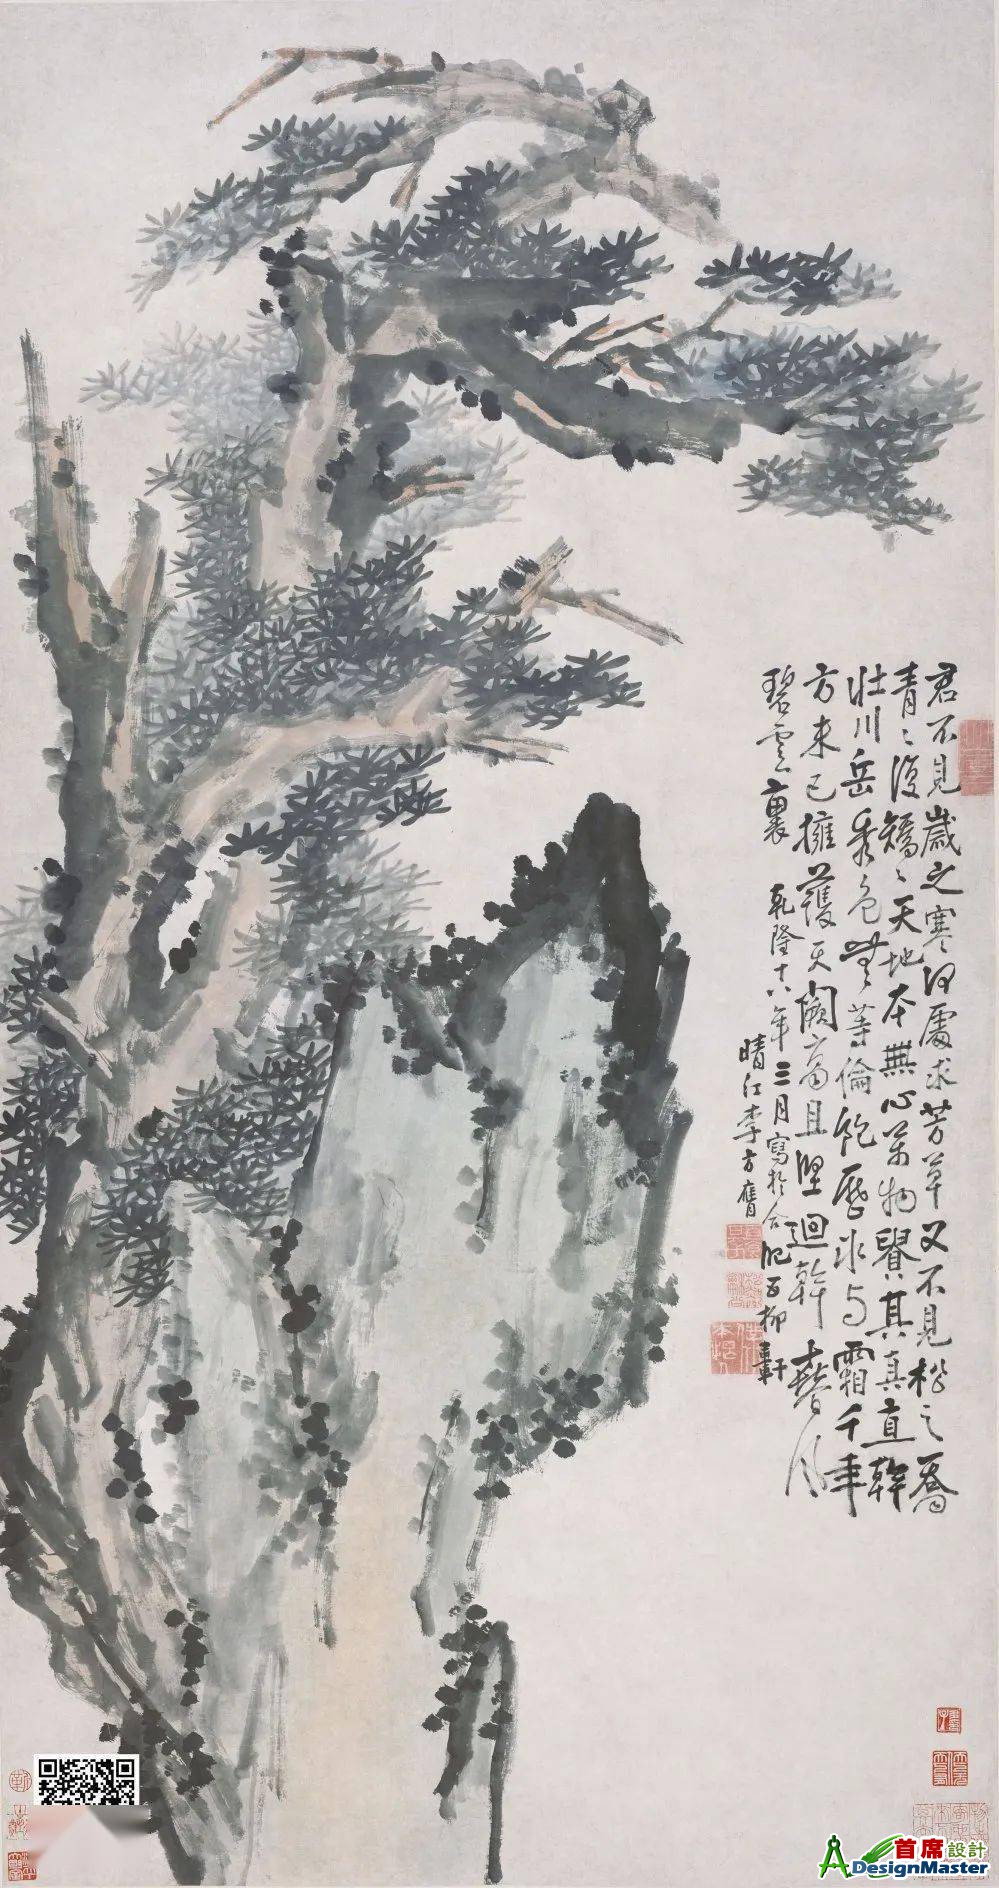 君不見歲之寒何處求芳草又不見松之喬
青〻復矯〻天地本無心萬物貴其真直幹
壯川岳秀色無等倫飽歷冰与霜千年
方未已擁護天闕高且堅迴幹春風
碧雲裏
乾隆十八年三月寫於合肥五柳軒
晴江李方膺
首席設計
DesignMaster